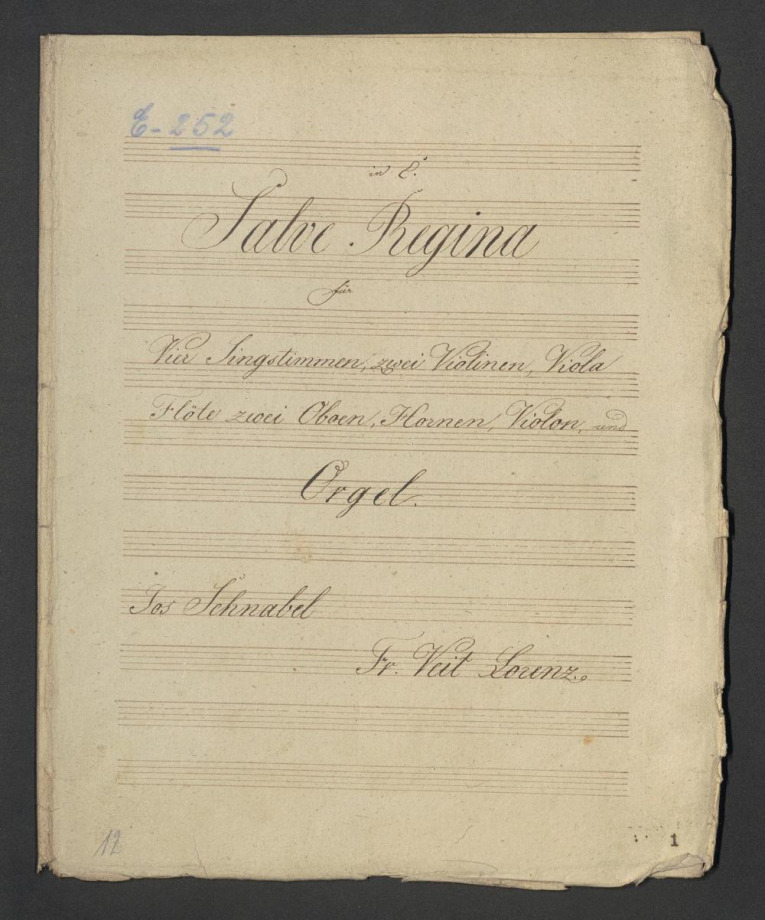 E-252
in C.
Salve Regina
für
Vier Singstimmen, zwei Violinen, Viola
Flöte zwei Oboen, Hornen, Violon, und
Orgel.
Jos Schnabel
Fr. Veit Lorenz.
12
1